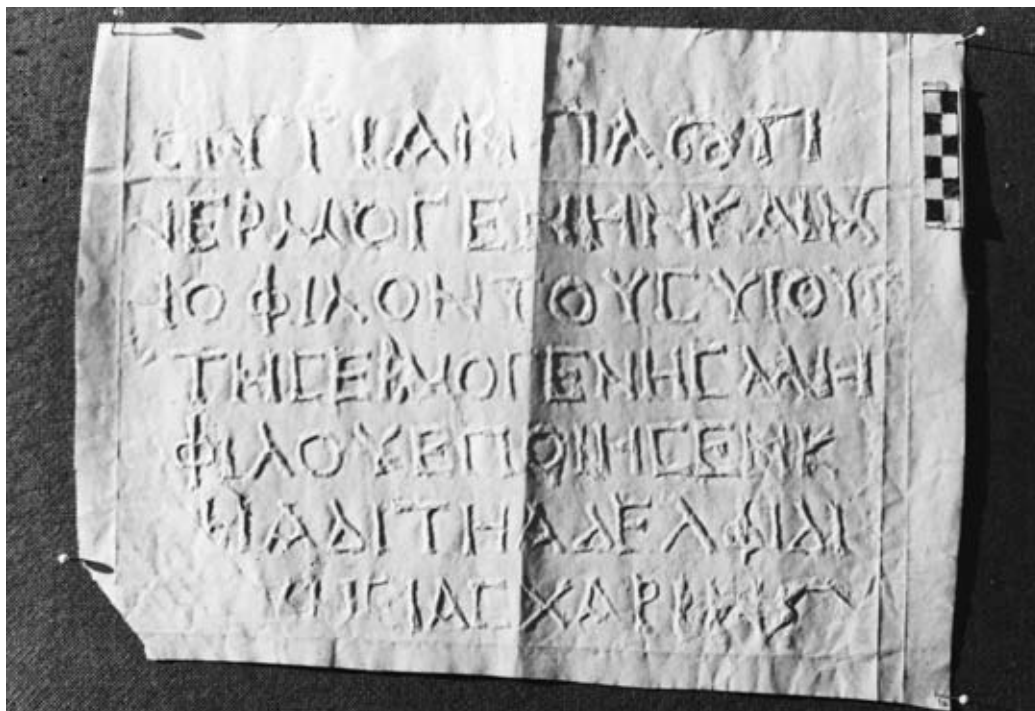 ΠΑΩΠΙ
ΝΕΡΜΟΓΕΝΗΝΚΑΙΜ
ΝΟΦΙΛΟΝΤΟΥϹΥΙΟΥϹ
ΤΗϹΕΡΜΟΓΕΝΗϹΜΝΗ
ΦΙΛΟΥΕΠΟΙΗϹΕΝΚ
ΑΔΙΤΗΑΔΕΛΦΙΔΙ
ΙΑϹΧΑΡΙΝ